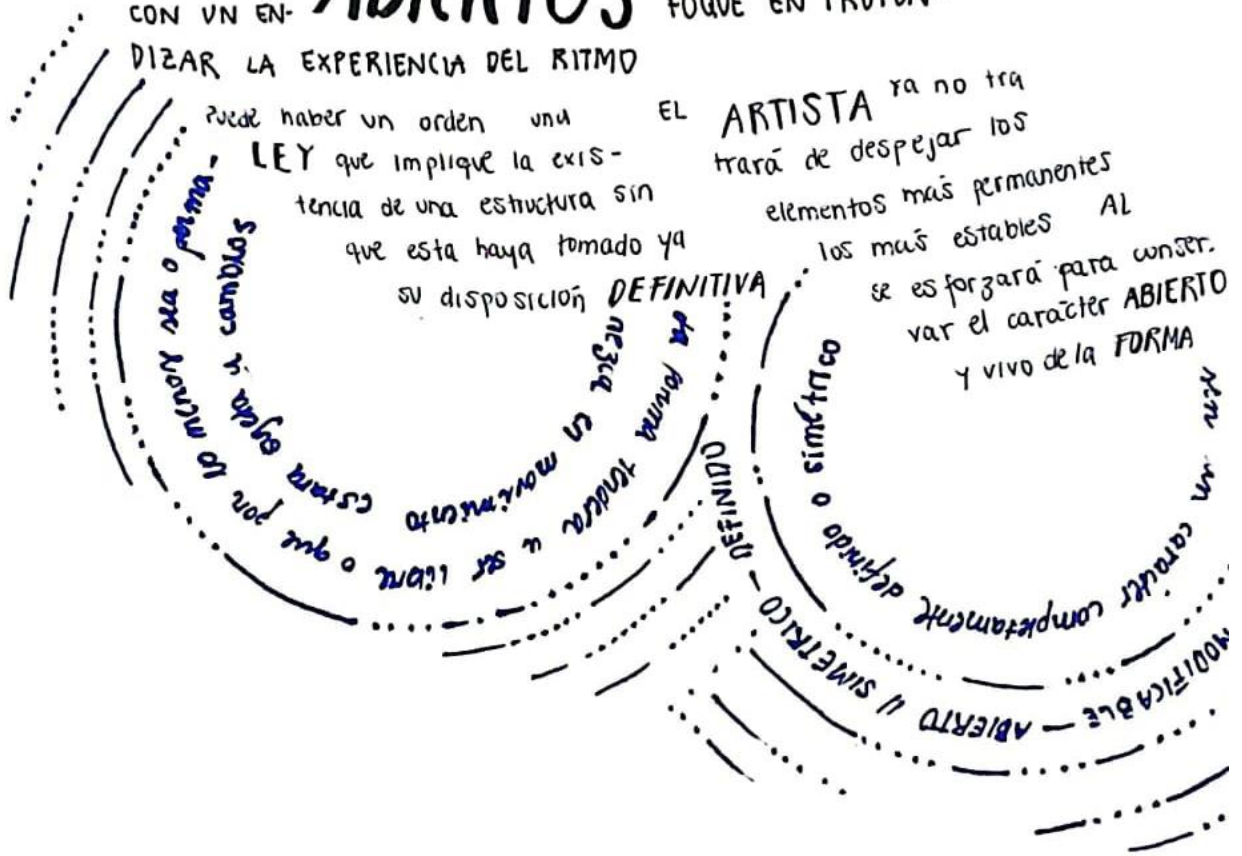 CON UN EN- ABIERTOS FOQUE EN PROFUN-
DIZAR LA EXPERIENCIA DEL RITMO
Puede haber un orden una
LEY que implique la exis-
tencia de una estructura sin
que esta haya tomado ya
su disposición DEFINITIVA
EL ARTISTA ya no tra
trará de despejar los
elementos mas permanentes
los mas estables AL
se esforzará para conser.
var el carácter ABIERTO
y vivo de la FORMA
da forma tendera a ser libre o que por lo menos o sea perma,
nezca en movimiento estara sujeta a cambios
sin un carácter completamente definido o simetrico
MODIFICABLE — ABIERTO U SIMETRICO — DEFINIDO